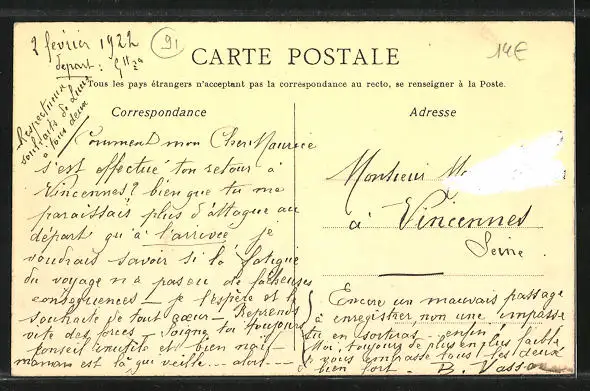 2 février 1922
départ :
91
14€
CARTE POSTALE
Tous les pays étrangers n'acceptant pas la correspondance au recto, se renseigner à la Poste.
Correspondance
Adresse
Respectueux
souhaits de
à tous deux
Comment mon Cher Maurice
s'est effectué ton retour à
Vincennes ? bien que tu me
paraissais plus d'attaque au
départ qu'à l'arrivée je
voudrais savoir si la fatigue
du voyage n'a pas eu de fâcheuses
conséquences _ je l'espère et te
souhaite de tout cœur _ Reprends
vite des forces _ soigne toi toujours
conseil inutile et bien naïf
maman est là qui veille... alors
Monsieur
à Vincennes
Seine
Encore un mauvais passage
à enregistrer, non une impasse
tu en sortiras _ enfin
Moi, toujours de plus en plus faible
je vous embrasse tous les deux
bien fort _ B. Vasson